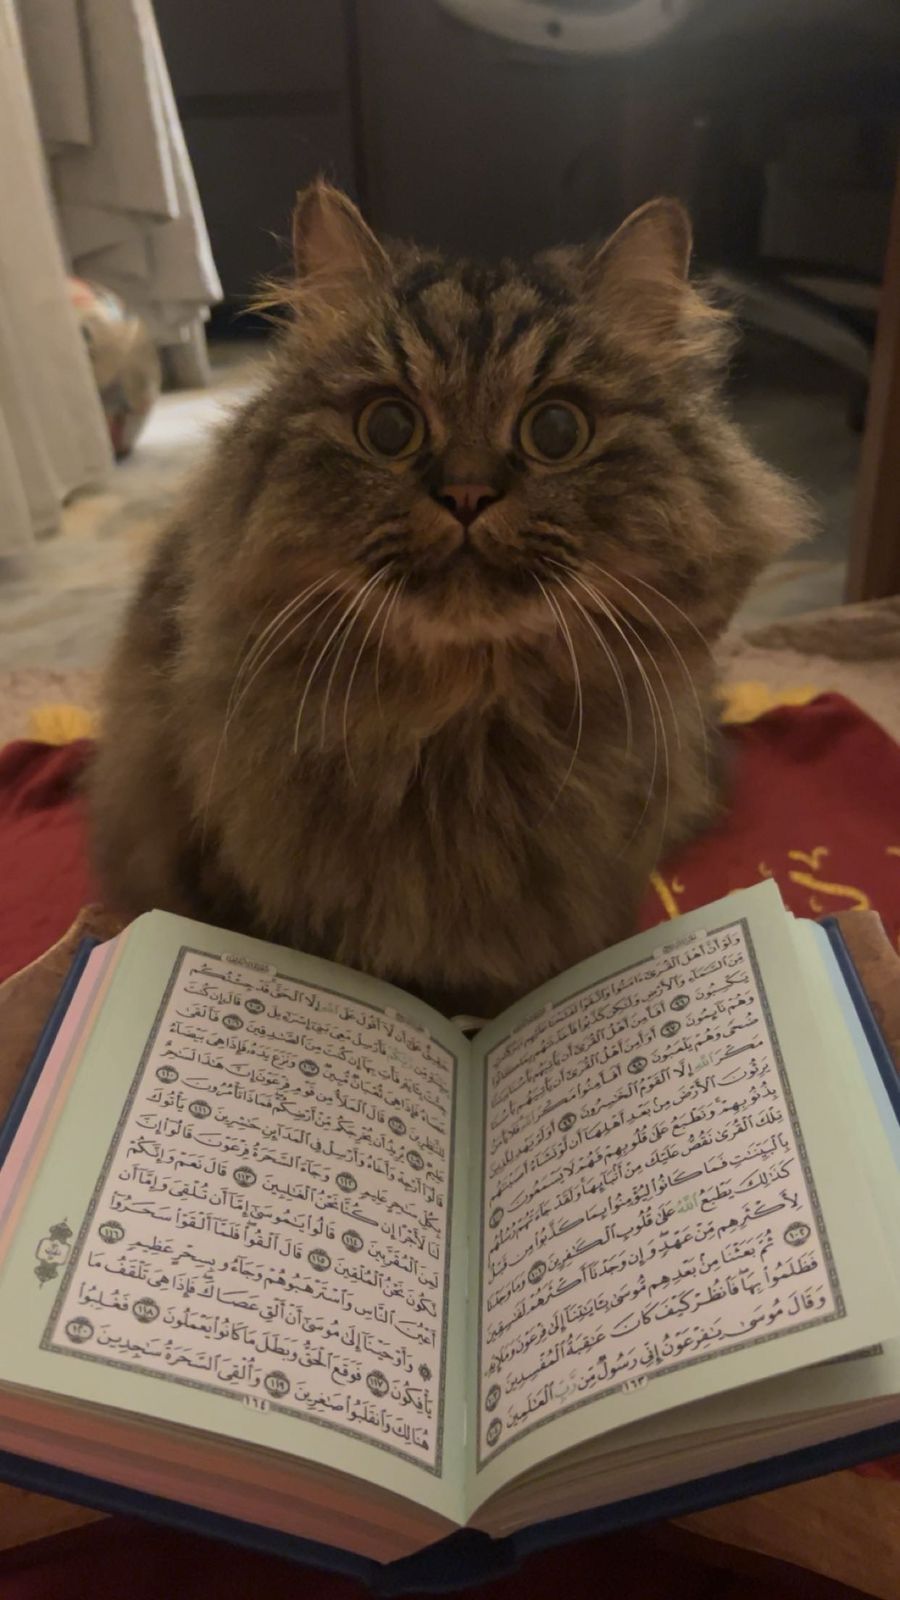 وَلَوْ أَنَّ أَهْلَ ٱلْقُرَىٰٓ ءَامَنُوا۟ وَٱتَّقَوْا۟ لَفَتَحْنَا عَلَيْهِم بَرَكَٰتٍ
مِّنَ ٱلسَّمَآءِ وَٱلْأَرْضِ وَلَٰكِن كَذَّبُوا۟ فَأَخَذْنَٰهُم بِمَا كَانُوا۟
يَكْسِبُونَ ٩٦ أَفَأَمِنَ أَهْلُ ٱلْقُرَىٰٓ أَن يَأْتِيَهُم بَأْسُنَا بَيَٰتًا
وَهُمْ نَآئِمُونَ ٩٧ أَوَأَمِنَ أَهْلُ ٱلْقُرَىٰٓ أَن يَأْتِيَهُم بَأْسُنَا
ضُحًى وَهُمْ يَلْعَبُونَ ٩٨ أَفَأَمِنُوا۟ مَكْرَ ٱللَّهِ فَلَا يَأْمَنُ
مَكْرَ ٱللَّهِ إِلَّا ٱلْقَوْمُ ٱلْخَٰسِرُونَ ٩٩ أَوَلَمْ يَهْدِ لِلَّذِينَ
يَرِثُونَ ٱلْأَرْضَ مِنۢ بَعْدِ أَهْلِهَآ أَن لَّوْ نَشَآءُ أَصَبْنَٰهُم
بِذُنُوبِهِمْ وَنَطْبَعُ عَلَىٰ قُلُوبِهِمْ فَهُمْ لَا يَسْمَعُونَ ١٠٠
تِلْكَ ٱلْقُرَىٰ نَقُصُّ عَلَيْكَ مِنْ أَنۢبَآئِهَا وَلَقَدْ جَآءَتْهُمْ رُسُلُهُم
بِٱلْبَيِّنَٰتِ فَمَا كَانُوا۟ لِيُؤْمِنُوا۟ بِمَا كَذَّبُوا۟ مِن قَبْلُ
كَذَٰلِكَ يَطْبَعُ ٱللَّهُ عَلَىٰ قُلُوبِ ٱلْكَٰفِرِينَ ١٠١ وَمَا وَجَدْنَا
لِأَكْثَرِهِم مِّنْ عَهْدٍ وَإِن وَجَدْنَآ أَكْثَرَهُمْ لَفَٰسِقِينَ
١٠٢ ثُمَّ بَعَثْنَا مِنۢ بَعْدِهِم مُّوسَىٰ بِـَٔايَٰتِنَآ إِلَىٰ فِرْعَوْنَ وَمَلَإِي۟هِۦ
فَظَلَمُوا۟ بِهَا فَٱنظُرْ كَيْفَ كَانَ عَٰقِبَةُ ٱلْمُفْسِدِينَ ١٠٣
وَقَالَ مُوسَىٰ يَٰفِرْعَوْنُ إِنِّى رَسُولٌ مِّن رَّبِّ ٱلْعَٰلَمِينَ ١٠٤
١٦٣
حَقِيقٌ عَلَىٰٓ أَن لَّآ أَقُولَ عَلَى ٱللَّهِ إِلَّا ٱلْحَقَّ قَدْ جِئْتُكُم
بِبَيِّنَةٍ مِّن رَّبِّكُمْ فَأَرْسِلْ مَعِىَ بَنِىٓ إِسْرَٰٓءِيلَ ١٠٥ قَالَ إِن كُنتَ
جِئْتَ بِـَٔايَةٍ فَأْتِ بِهَآ إِن كُنتَ مِنَ ٱلصَّٰدِقِينَ ١٠٦ فَأَلْقَىٰ
عَصَاهُ فَإِذَا هِىَ ثُعْبَانٌ مُّبِينٌ ١٠٧ وَنَزَعَ يَدَهُۥ فَإِذَا هِىَ بَيْضَآءُ
لِلنَّٰظِرِينَ ١٠٨ قَالَ ٱلْمَلَأُ مِن قَوْمِ فِرْعَوْنَ إِنَّ هَٰذَا لَسَٰحِرٌ
عَلِيمٌ ١٠٩ يُرِيدُ أَن يُخْرِجَكُم مِّنْ أَرْضِكُمْ فَمَاذَا تَأْمُرُونَ ١١٠
قَالُوٓا۟ أَرْجِهْ وَأَخَاهُ وَأَرْسِلْ فِى ٱلْمَدَآئِنِ حَٰشِرِينَ ١١١ يَأْتُوكَ
بِكُلِّ سَٰحِرٍ عَلِيمٍ ١١٢ وَجَآءَ ٱلسَّحَرَةُ فِرْعَوْنَ قَالُوٓا۟ إِنَّ
لَنَا لَأَجْرًا إِن كُنَّا نَحْنُ ٱلْغَٰلِبِينَ ١١٣ قَالَ نَعَمْ وَإِنَّكُمْ
لَمِنَ ٱلْمُقَرَّبِينَ ١١٤ قَالُوا۟ يَٰمُوسَىٰٓ إِمَّآ أَن تُلْقِىَ وَإِمَّآ أَن
نَّكُونَ نَحْنُ ٱلْمُلْقِينَ ١١٥ قَالَ أَلْقُوا۟ فَلَمَّآ أَلْقَوْا۟ سَحَرُوٓا۟
أَعْيُنَ ٱلنَّاسِ وَٱسْتَرْهَبُوهُمْ وَجَآءُو بِسِحْرٍ عَظِيمٍ ١١٦
وَأَوْحَيْنَآ إِلَىٰ مُوسَىٰٓ أَنْ أَلْقِ عَصَاكَ فَإِذَا هِىَ تَلْقَفُ مَا
يَأْفِكُونَ ١١٧ فَوَقَعَ ٱلْحَقُّ وَبَطَلَ مَا كَانُوا۟ يَعْمَلُونَ ١١٨ فَغُلِبُوا۟
هُنَالِكَ وَٱنقَلَبُوا۟ صَٰغِرِينَ ١١٩ وَأُلْقِىَ ٱلسَّحَرَةُ سَٰجِدِينَ ١٢٠
١٦٤